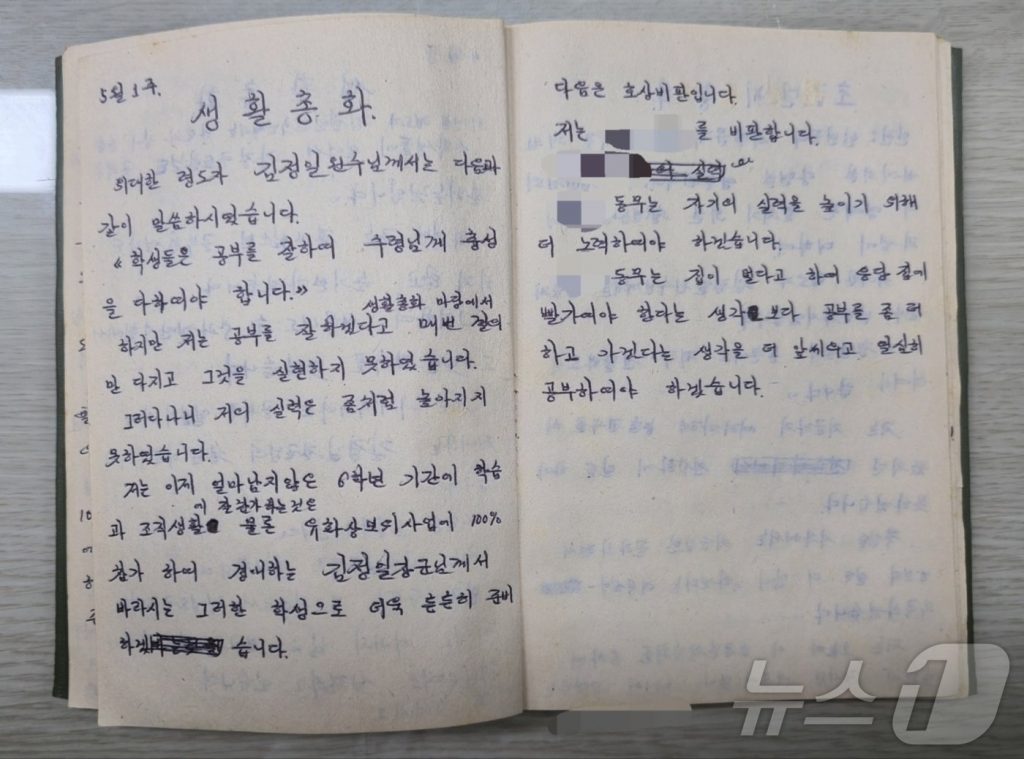 5월 1주.
생활총화.
위대한 령도자 김정일원수님께서는 다음과
같이 말씀하시였습니다.
《학생들은 공부를 잘하여 수령님께 충성
을 다하여야 합니다.》
생활총화 마당에서
하지만 저는 공부를 잘하겠다고 매번 결의
만 다지고 그것을 실현하지 못하였습니다.
그러다나니 저의 실력은 좀처럼 높아지지
못하였습니다.
저는 이제 얼마남지않은 6학년 기간에 학습
에 잘 참가하는것은
과 조직생활 물론 유화상보위사업에 100%
참가 하며 경애하는 김정일장군님께서
바라시는 그러한 학생으로 더욱 튼튼히 준비
하겠 습니다.
다음은 호상비판입니다.
저는 를 비판합니다.
동무는 자기의 실력을 높이기 위해
더 노력하여야 하겠습니다.
동무는 집이 멀다고 하여 응당 집에
빨가여야 한다는 생각보다 공부를 좀 더
하고 가겠다는 생각을 더 앞세우고 열심히
공부하여야 하겠습니다.
뉴스1